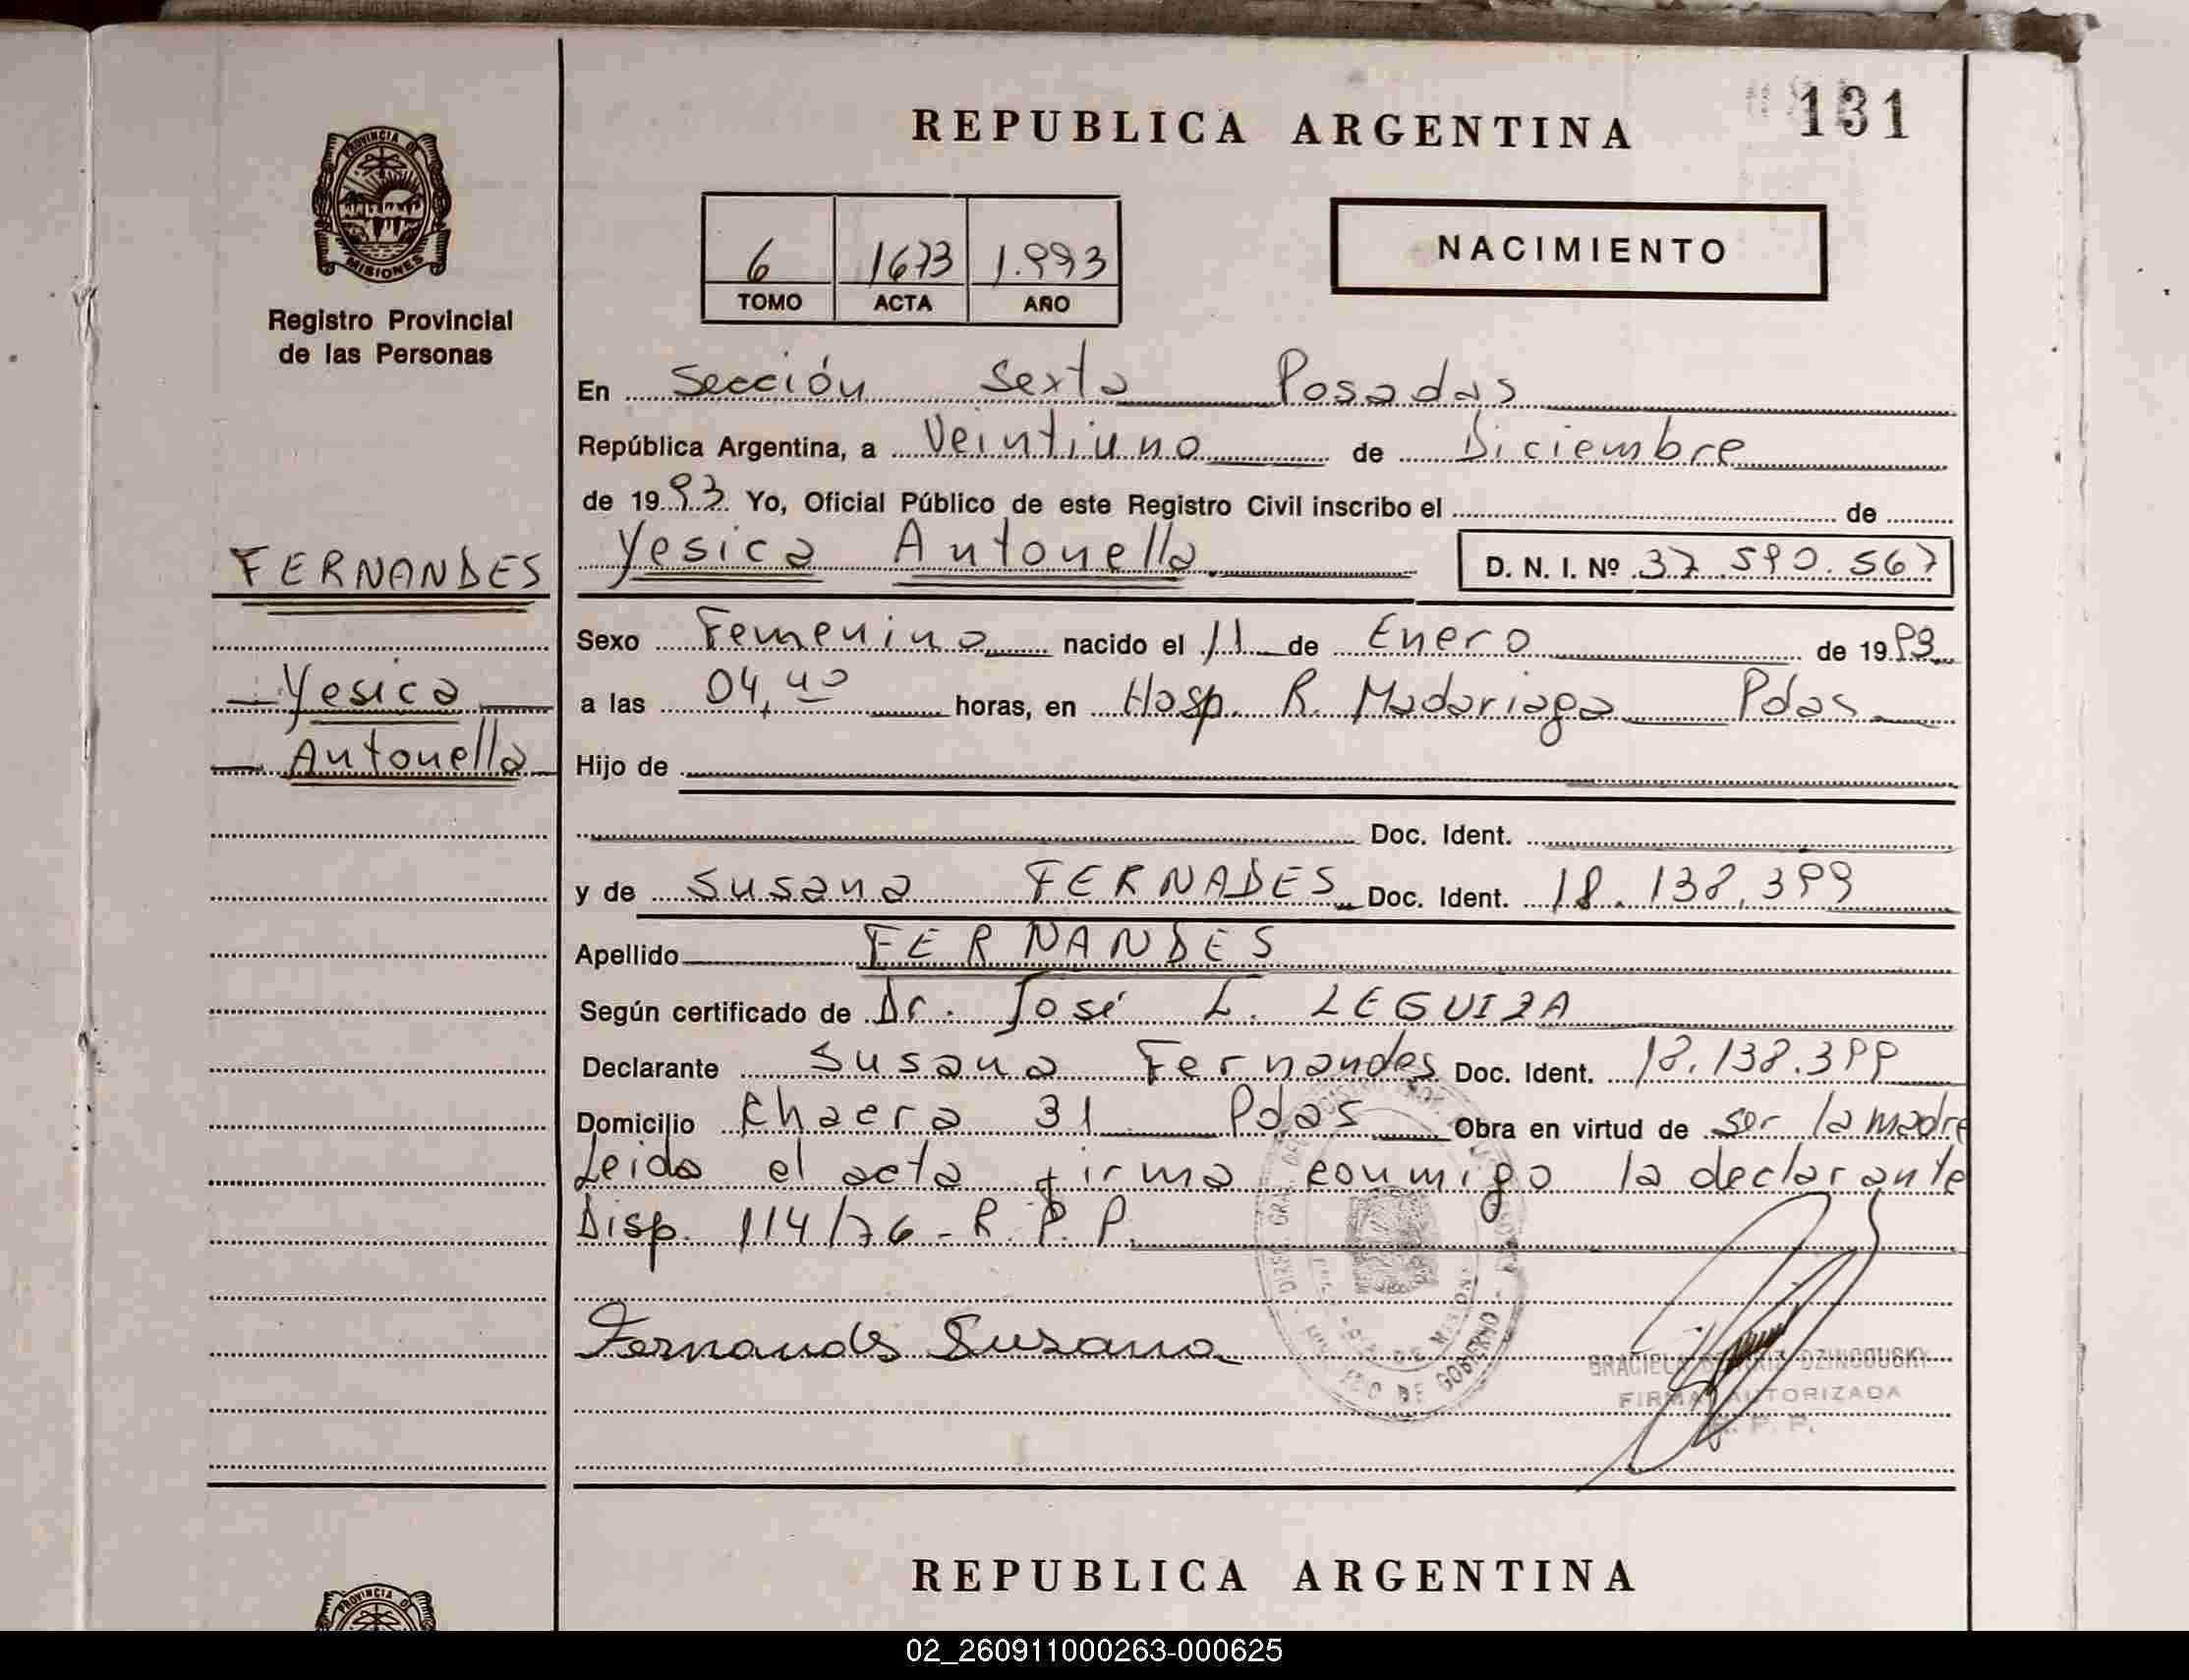 REPUBLICA ARGENTINA
131
PROVINCIA DE
MISIONES
Registro Provincial
de las Personas
6 1673 1.993
TOMO ACTA AÑO
NACIMIENTO
En Sección Sexta Posadas
República Argentina, a Veintiuno de Diciembre
de 1993 Yo, Oficial Público de este Registro Civil inscribo el de
FERNANDES
Yesica Antonella D. N. I. Nº 37.590.567
Sexo Femenino nacido el 11 de Enero de 1993
Yesica
a las 04,40 horas, en Hosp. R. Madariaga Pdas
Antonella
Hijo de
Doc. Ident.
y de Susana FERNADES Doc. Ident. 18.138.399
Apellido FERNANDES
Según certificado de Dr. José L. LEGUIZA
Declarante Susana Fernandes Doc. Ident. 18.138.399
Domicilio Chacra 31 Pdas Obra en virtud de ser la madre
Leida el acta firma conmigo la declarante
Disp. 114/76 - R. P. P.
Fernandes Susana
DE GOBIERNO
GRACIELA DZINCOUSKY
FIRMA AUTORIZADA
R. P. P.
REPUBLICA ARGENTINA
PROVINCIA DE
02_260911000263-000625